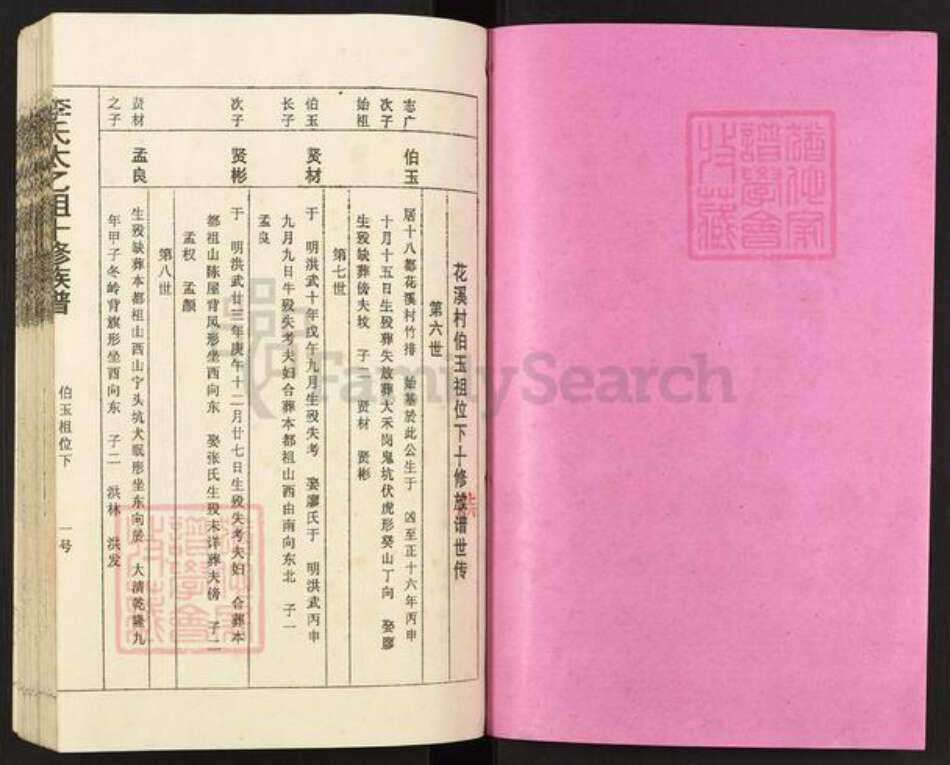 花溪村伯玉祖位下十修族谱世传
第六世
志广
次子
始祖
伯玉
居十八都花溪村竹排 始基於此公生于 凶至正十六年丙申
十月十五日生殁葬失放葬大禾岗鬼坑伏虎形癸山丁向 娶廖
生殁缺葬傍夫坟 子二 贤材 贤彬
第七世
伯玉
长子
贤材
于 明洪武十年戊午九月生殁失考 娶廖氏于 明洪武丙申
九月九日牛殁失考夫妇合葬本都祖山西由南向东北 子一
孟良
次子
贤彬
于 明洪武廿三年庚午十二月廿七日生殁失考夫妇 合葬本
都祖山陈屋背凤形坐西向东 娶张氏生殁未详葬夫傍 子二
孟权 孟颜
第八世
贤材
之子
孟良
生殁缺葬本都祖山西山宁头坑犬眠形坐东向於 大清乾隆九
年甲子冬岭背旗形坐西向东 子二 洪林 洪发
李氏太乙祖十修族谱
伯玉祖位下
一号
FamilySearch